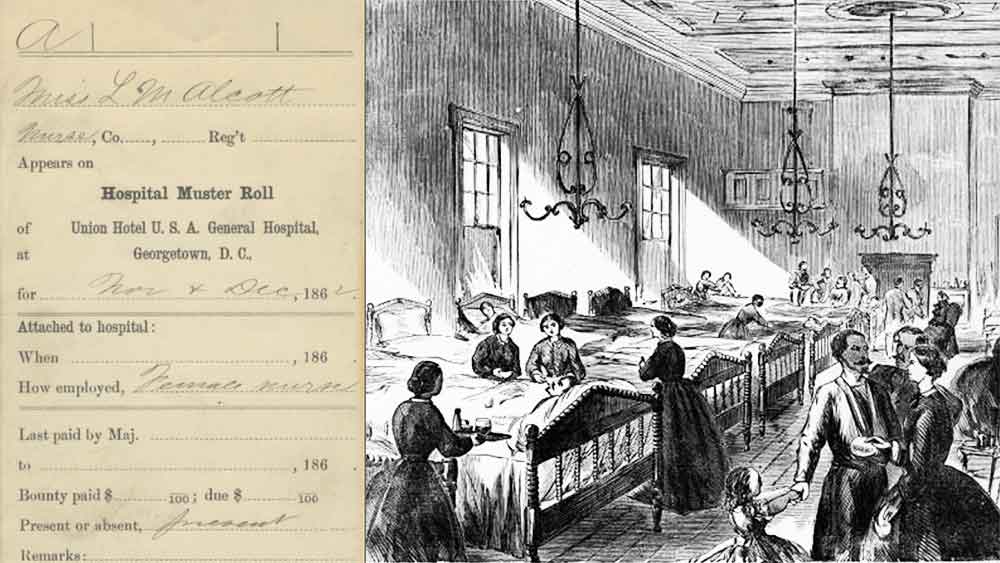 A
Miss L M Alcott
Nurse, Co. ......, ......... Reg't ...................
Appears on
Hospital Muster Roll
of Union Hotel U. S. A. General Hospital,
at Georgetown, D. C.,
for Nov & Dec, 1862.
Attached to hospital:
When ..............................., 186 .
How employed, Female nurse
Last paid by Maj. ...............................
to ..............................., 186 .
Bounty paid $ ......... 100; due $ ......... 100
Present or absent, present
Remarks: